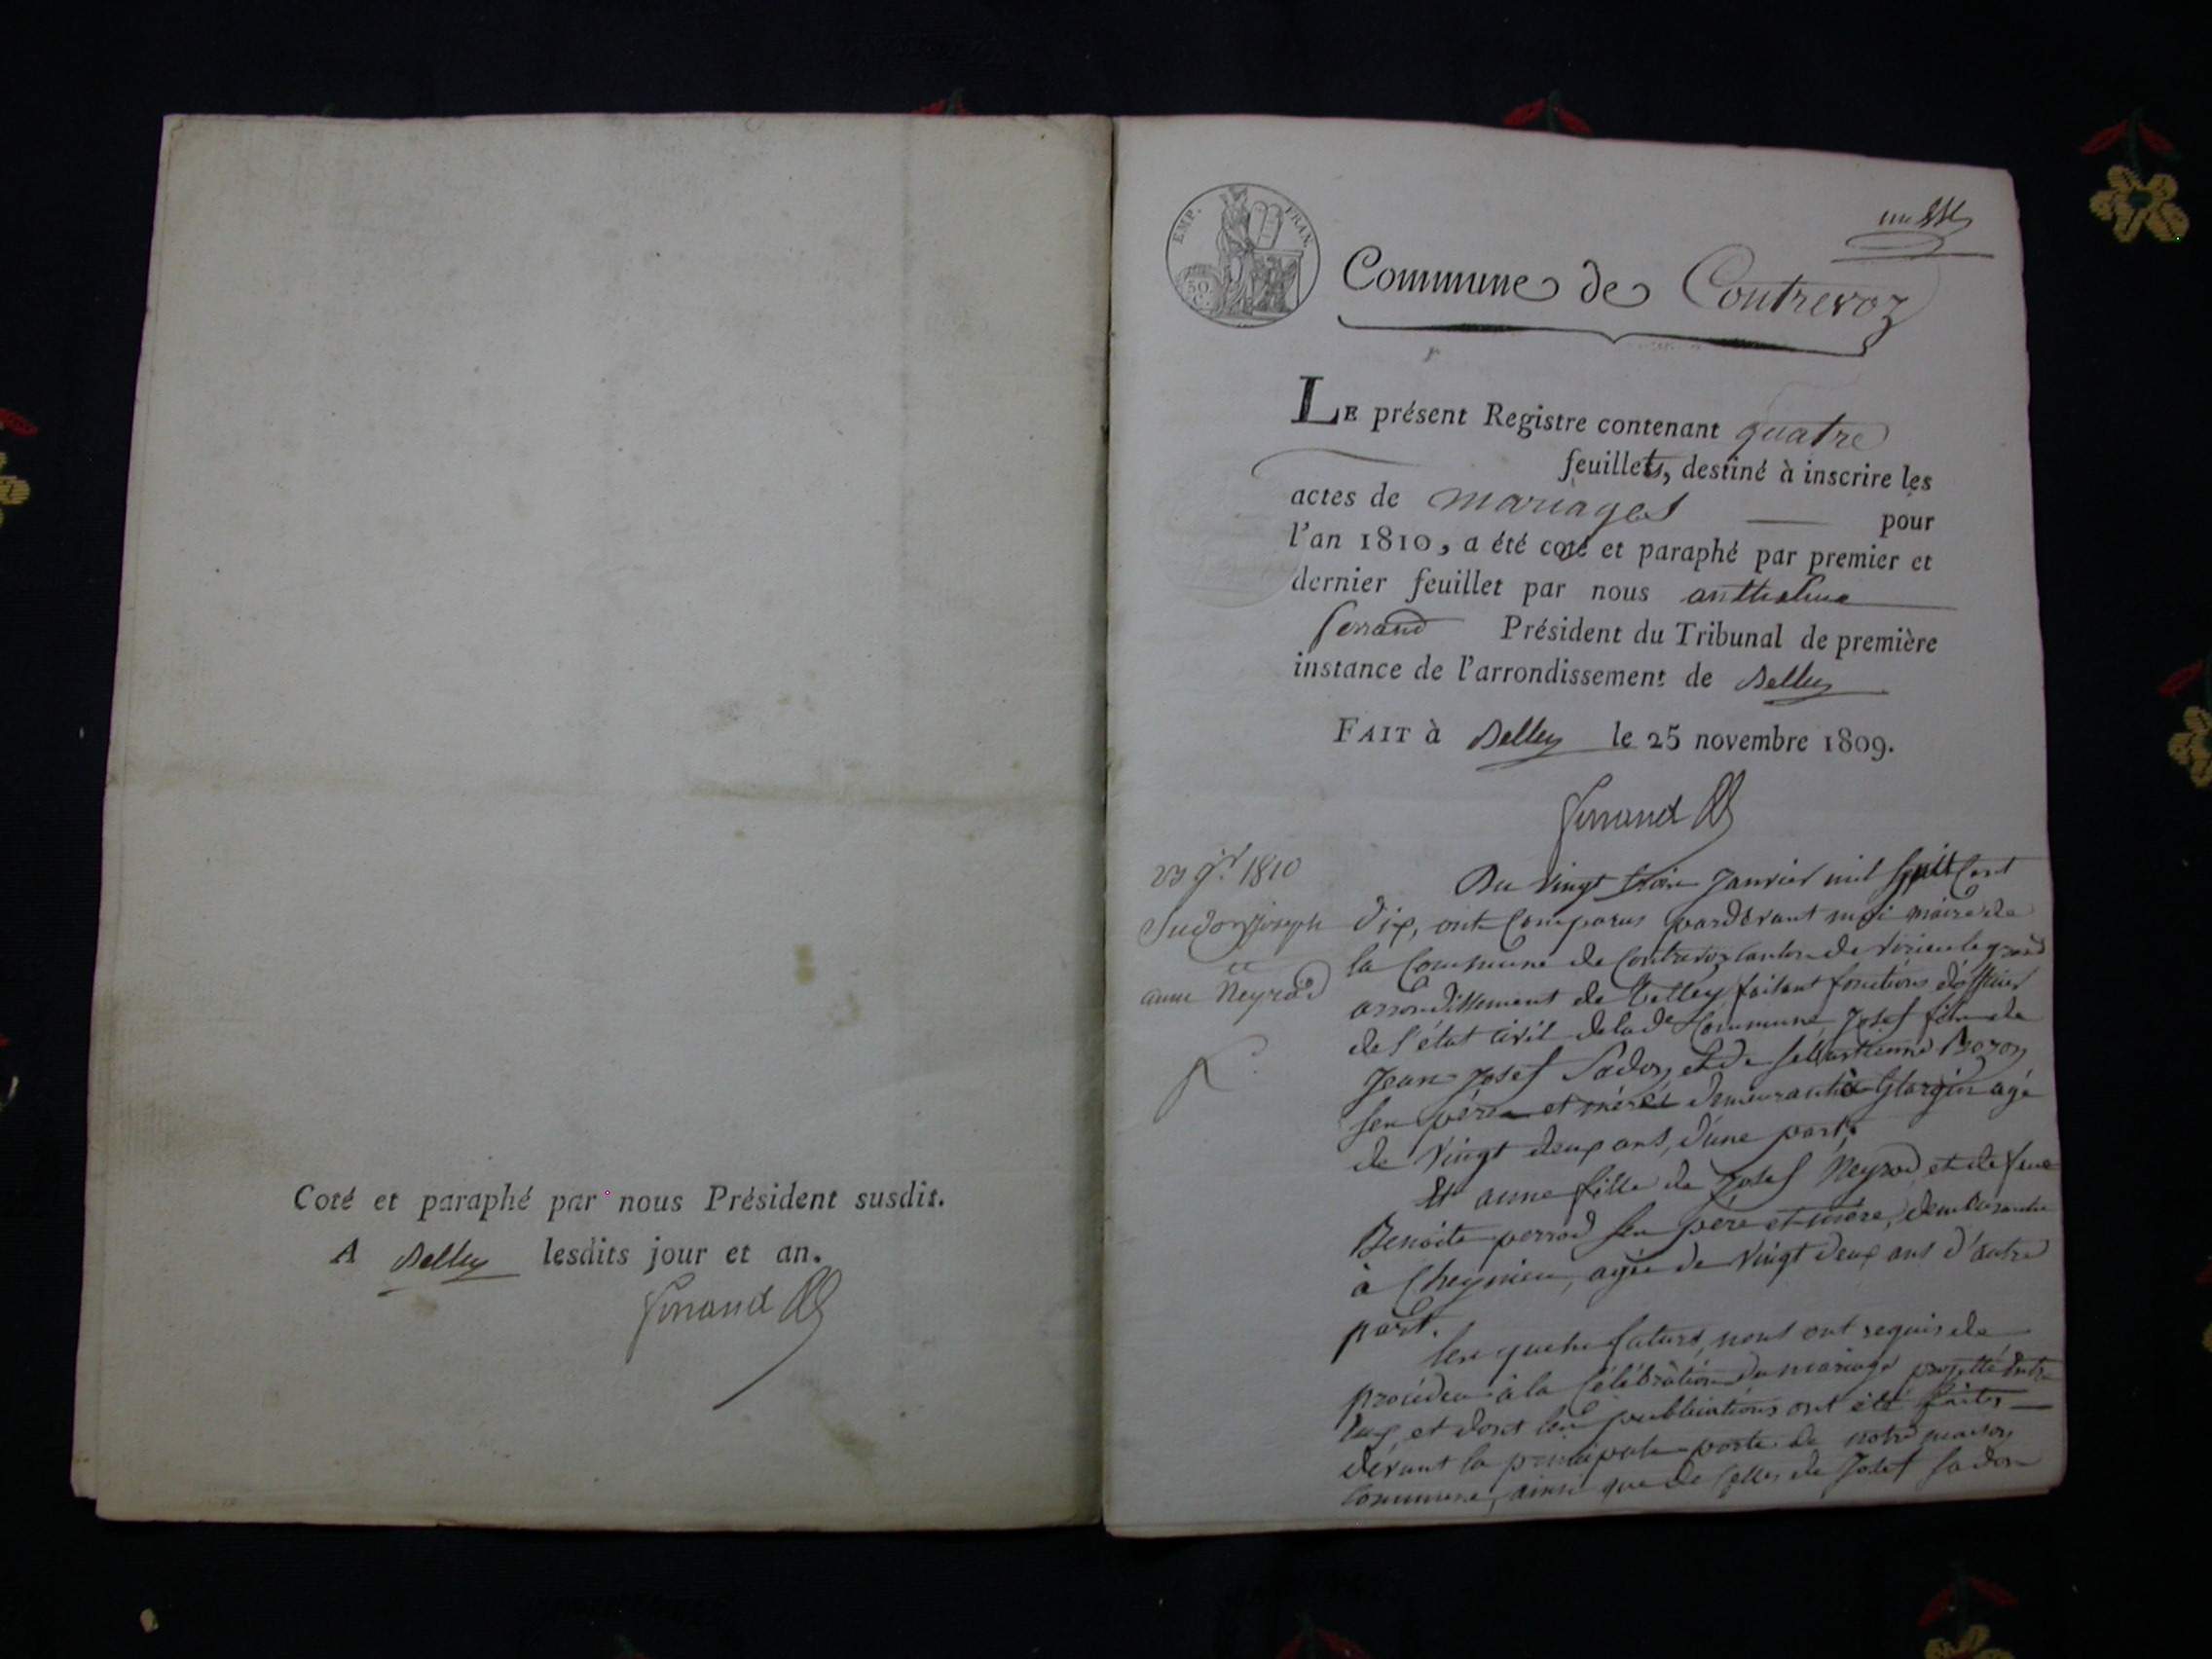 Coté et paraphé par nous Président susdit.
A Belley lesdits jour et an.
Ferrand
EMP. FRAN.
50 C.
Commune de Contrevoz
LE présent Registre contenant quatre
feuillets, destiné à inscrire les
actes de mariages pour
l'an 1810, a été coté et paraphé par premier et
dernier feuillet par nous anthelme
ferrand Président du Tribunal de première
instance de l'arrondissement de Belley
FAIT à Belley le 25 novembre 1809.
Ferrand
23 Jr. 1810
Sudon Joseph
et
anne Neyrod
Du vingt trois Janvier mil huit cent
dix, ont comparus pardevant moi maire de
la Commune de Contrevoz canton de virieu le grand
arrondissement de Belley faisant fonctions d'officier
de l'état civil de lade Commune, Josef fils de
Jean Josef Sadon, et de sebastienne Bozon
ses père et mère demeurant à Glargin agé
de vingt deux ans, d'une part.
Et anne fille de Josef Neyrod, et de feue
Benoite perrod ses père et mère, demeurante
à Cheynieu, agée de vingt deux ans d'autre
part.
lesquels futurs, nous ont requis de
procéder à la célébration du mariage projetté entre
eux, et dont les publications ont été faites
devant la principale porte de notre maison
commune, ainsi que de celles de Josef Sadon